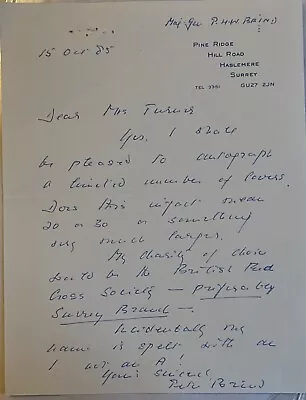 Maj Gen P.H.W. BRIND
15 Oct 85
PINE RIDGE
HILL ROAD
HASLEMERE
SURREY
TEL 2351 GU27 2JN
Dear Mrs Turner
Yes, I shall
be pleased to autograph
a limited number of covers.
Does this infact mean
20 or 30 or something
very much larger.
My Charity of Choice
would be the British Red
Cross Society — preferably
Surrey Branch —.
Incidentally my
name is spelt with an
I not an A!
Yours sincerely
Peter Brind